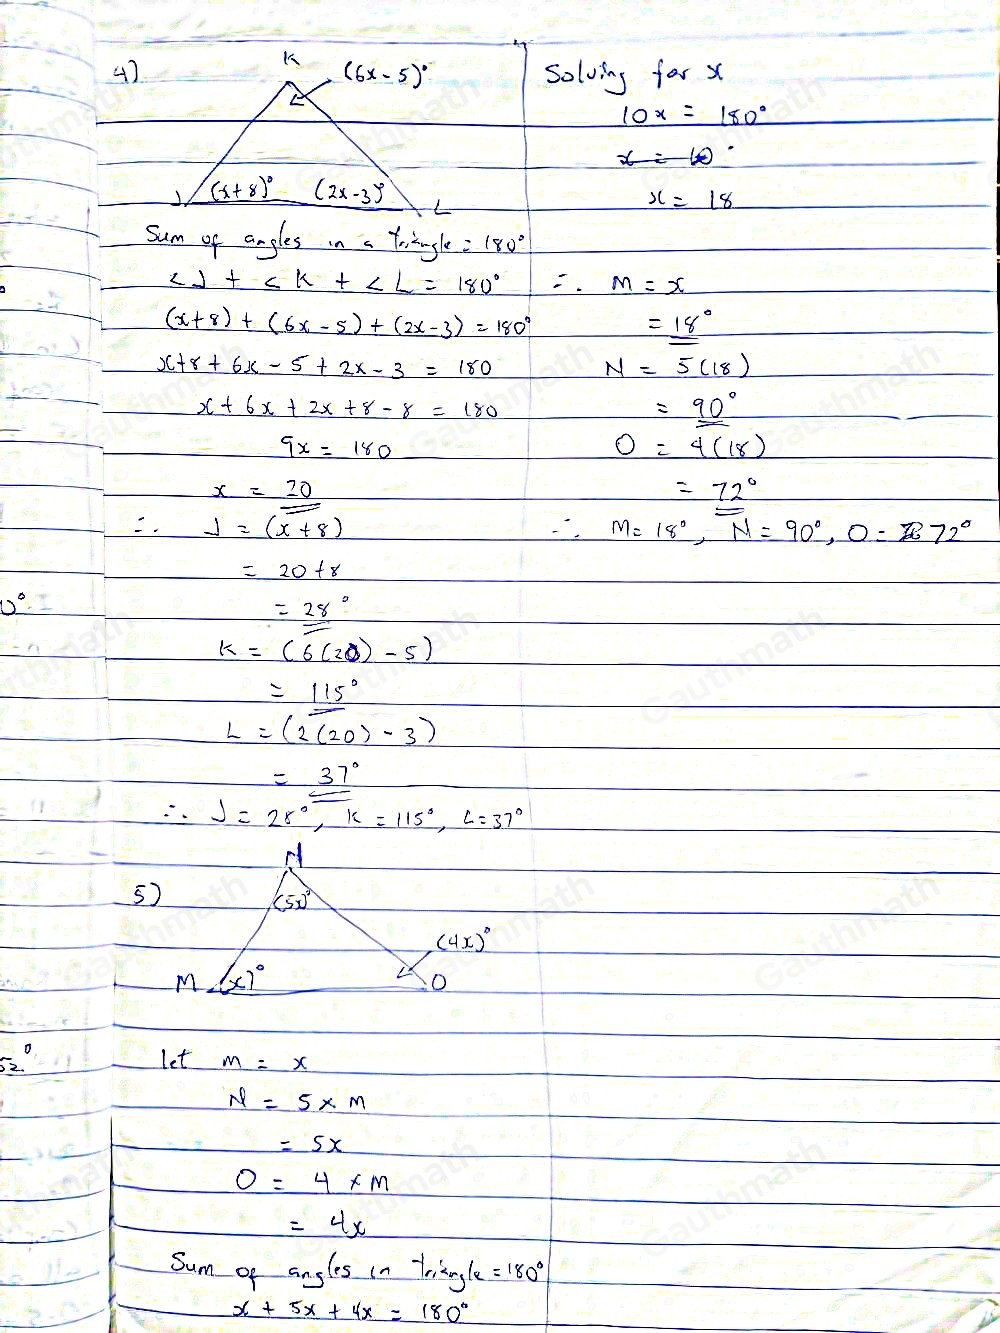 4)
K
(6x-5)°
(x+8)° (2x-3)°
J L
Sum of angles in a triangle = 180°
<J + <K + <L = 180°
(x+8) + (6x-5) + (2x-3) = 180°
x+8+6x-5+2x-3 = 180
x+6x+2x+8-8 = 180
9x = 180
x = 20
∴ J = (x+8)
= 20+8
= 28°
K = (6(20)-5)
= 115°
L = (2(20)-3)
= 37°
∴ J = 28°, K = 115°, L = 37°
5)
N
(5x)°
(4x)°
M (x)° O
let m = x
N = 5 × M
= 5x
O = 4 × M
= 4x
Sum of angles in triangle = 180°
x + 5x + 4x = 180°
Solving for x
10x = 180°
x = 10
x = 18
∴ M = x
= 18°
N = 5(18)
= 90°
O = 4(18)
= 72°
∴ M = 18°, N = 90°, O = 72°
0°
52°
Gauthmath